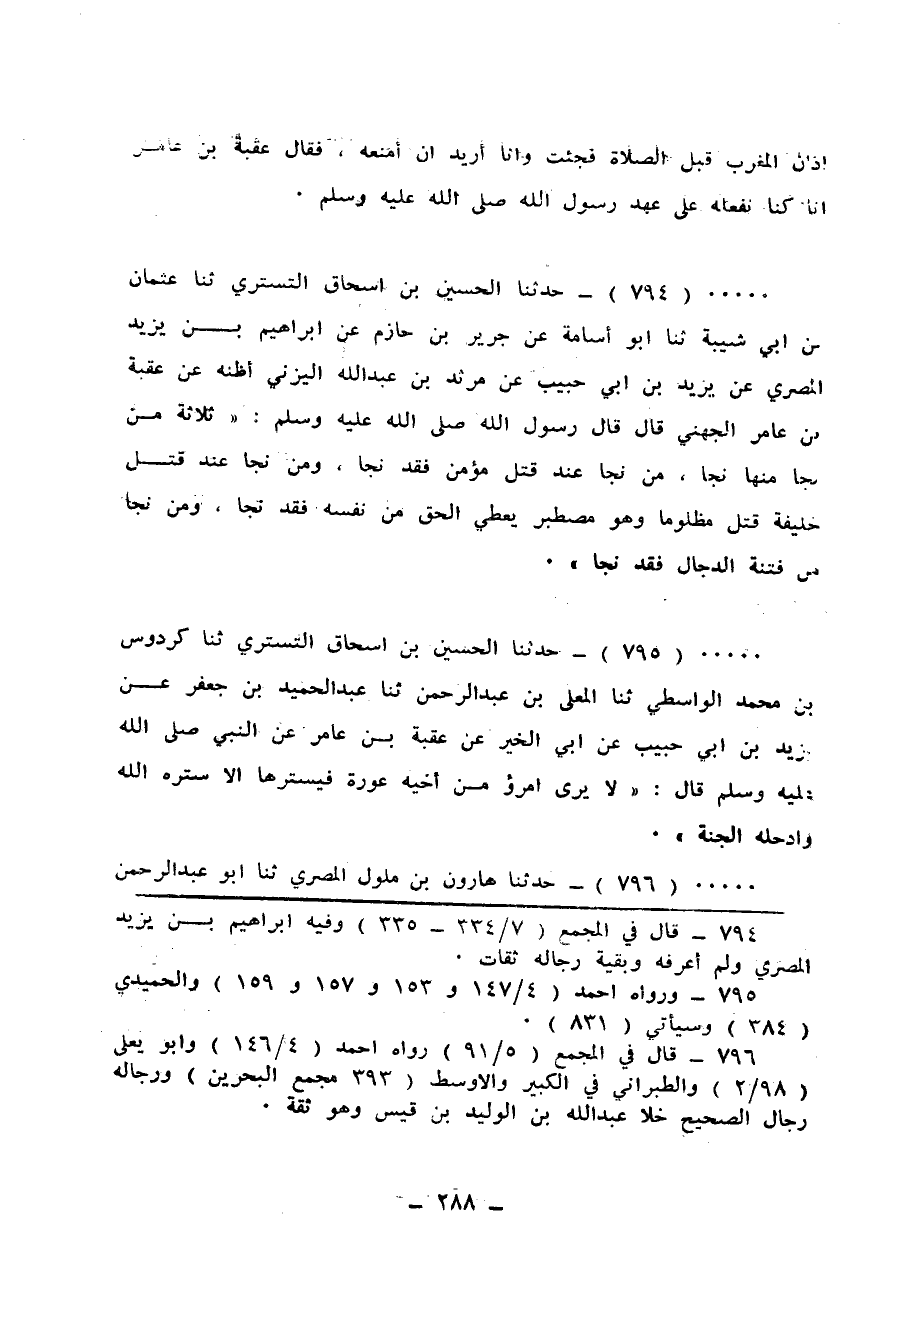 اذان المغرب قبل الصلاة فجئت وانا أريد ان أمنعه ، فقال عقبة بن عامر
انا كنا نفعله على عهد رسول الله صلى الله عليه وسلم ٠
٠٠٠٠٠ ( ٧٩٤ ) ـ حدثنا الحسين بن اسحاق التستري ثنا عثمان
بن ابي شيبة ثنا ابو أسامة عن جرير بن حازم عن ابراهيم بـــن يزيد
المصري عن يزيد بن ابي حبيب عن مرثد بن عبدالله اليزني أظنه عن عقبة
بن عامر الجهني قال قال رسول الله صلى الله عليه وسلم : « ثلاثة مـن
نجا منها نجا ، من نجا عند قتل مؤمن فقد نجا ، ومن نجا عند قتـــل
خليفة قتل مظلوما وهو مصطبر يعطي الحق من نفسه فقد نجا ، ومن نجا
من فتنة الدجال فقد نجا » ٠
٠٠٠٠٠ ( ٧٩٥ ) ـ حدثنا الحسين بن اسحاق التستري ثنا كردوس
بن محمد الواسطي ثنا المعلى بن عبدالرحمن ثنا عبدالحميد بن جعفر عـــن
يزيد بن ابي حبيب عن ابي الخير عن عقبة بـن عامر عن النبي صلى الله
عليه وسلم قال : « لا يرى امرؤ مـن أخيه عورة فيسترها الا ستره الله
وادخله الجنة » ٠
٠٠٠٠٠ ( ٧٩٦ ) ـ حدثنا هارون بن ملول المصري ثنا ابو عبدالرحمن
٧٩٤ ـ قال في المجمع ( ٣٣٤/٧ ـ ٣٣٥ ) وفيه ابراهيم بـــن يزيد
المصري ولم أعرفه وبقية رجاله ثقات ٠
٧٩٥ ـ ورواه احمد ( ١٤٧/٤ و ١٥٣ و ١٥٧ و ١٥٩ ) والحميدي
( ٣٨٤ ) وسيأتي ( ٨٣١ ) ٠
٧٩٦ ـ قال في المجمع ( ٩١/٥ ) رواه احمد ( ١٤٦/٤ ) وابو يعلى
( ٢/٩٨ ) والطبراني في الكبير والاوسط ( ٣٩٣ مجمع البحرين ) ورجاله
رجال الصحيح خلا عبدالله بن الوليد بن قيس وهو ثقة ٠
ـ ٢٨٨ ـ